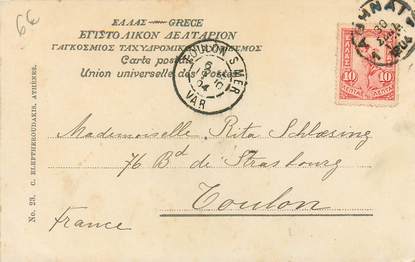 6€
ΕΛΛΑΣ — GRECE
ΕΠΙΣΤΟΛΙΚΟΝ ΔΕΛΤΑΡΙΟΝ
ΠΑΓΚΟΣΜΙΟΣ ΤΑΧΥΔΡΟΜΙΚΟΣ
Carte postale
Union universelle des Postes
TOULON S MER
6
04
VAR
ΑΘΗΝΑΙ
ΕΛΛΑΣ
10 10
ΛΕΠΤΑ ΛΕΠΤΑ
Mademoiselle Rita Schlœsing
76 Bd de Strasbourg
Toulon
France
No. 23. C. ELEFTHEROUDAKIS, ATHÈNES.